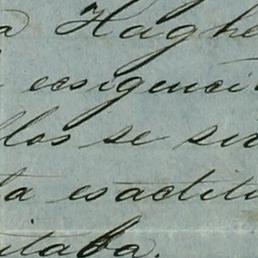 a Haghe
ecsigenci
llos se su
ta esactitu
itaba.